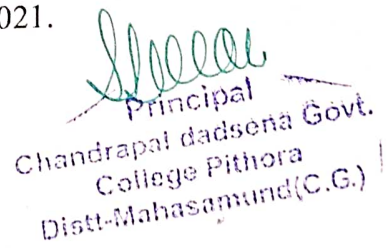 021.
Principal
Chandrapal dadsena Govt.
College Pithora
Distt-Mahasamund(C.G.)